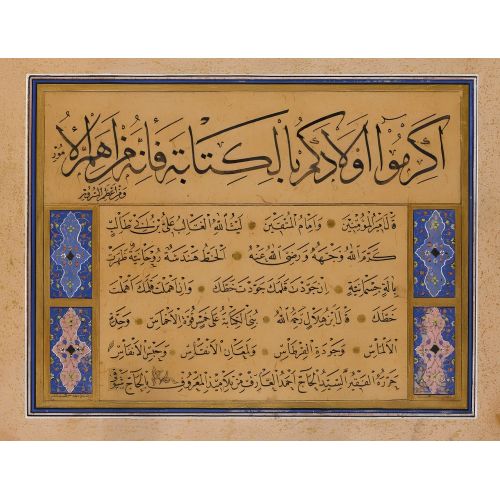 اكرموا اولادكم بالكتابة فانه من اهم الامور
ومن اعظم السرور
قال امير المؤمنين وامام المتقين ليث الله الغالب على بن ابى طالب
كرم الله وجهه ورضى الله عنه الخط هندسة روحانية ظهرت
بالة جسمانية ان جودت قلمك جودت خطك وان اهملت قلمك اهملت
خطك قال ابن هلال رحمه الله بنى الكتابة على خمس قوة الاخماس وحدة
الالماس وجودة القرطاس ولمعان الانقاس وحبس الانفاس
حرره الفقير السيد الحاج احمد العارف من تلاميذ المعروف الحاج